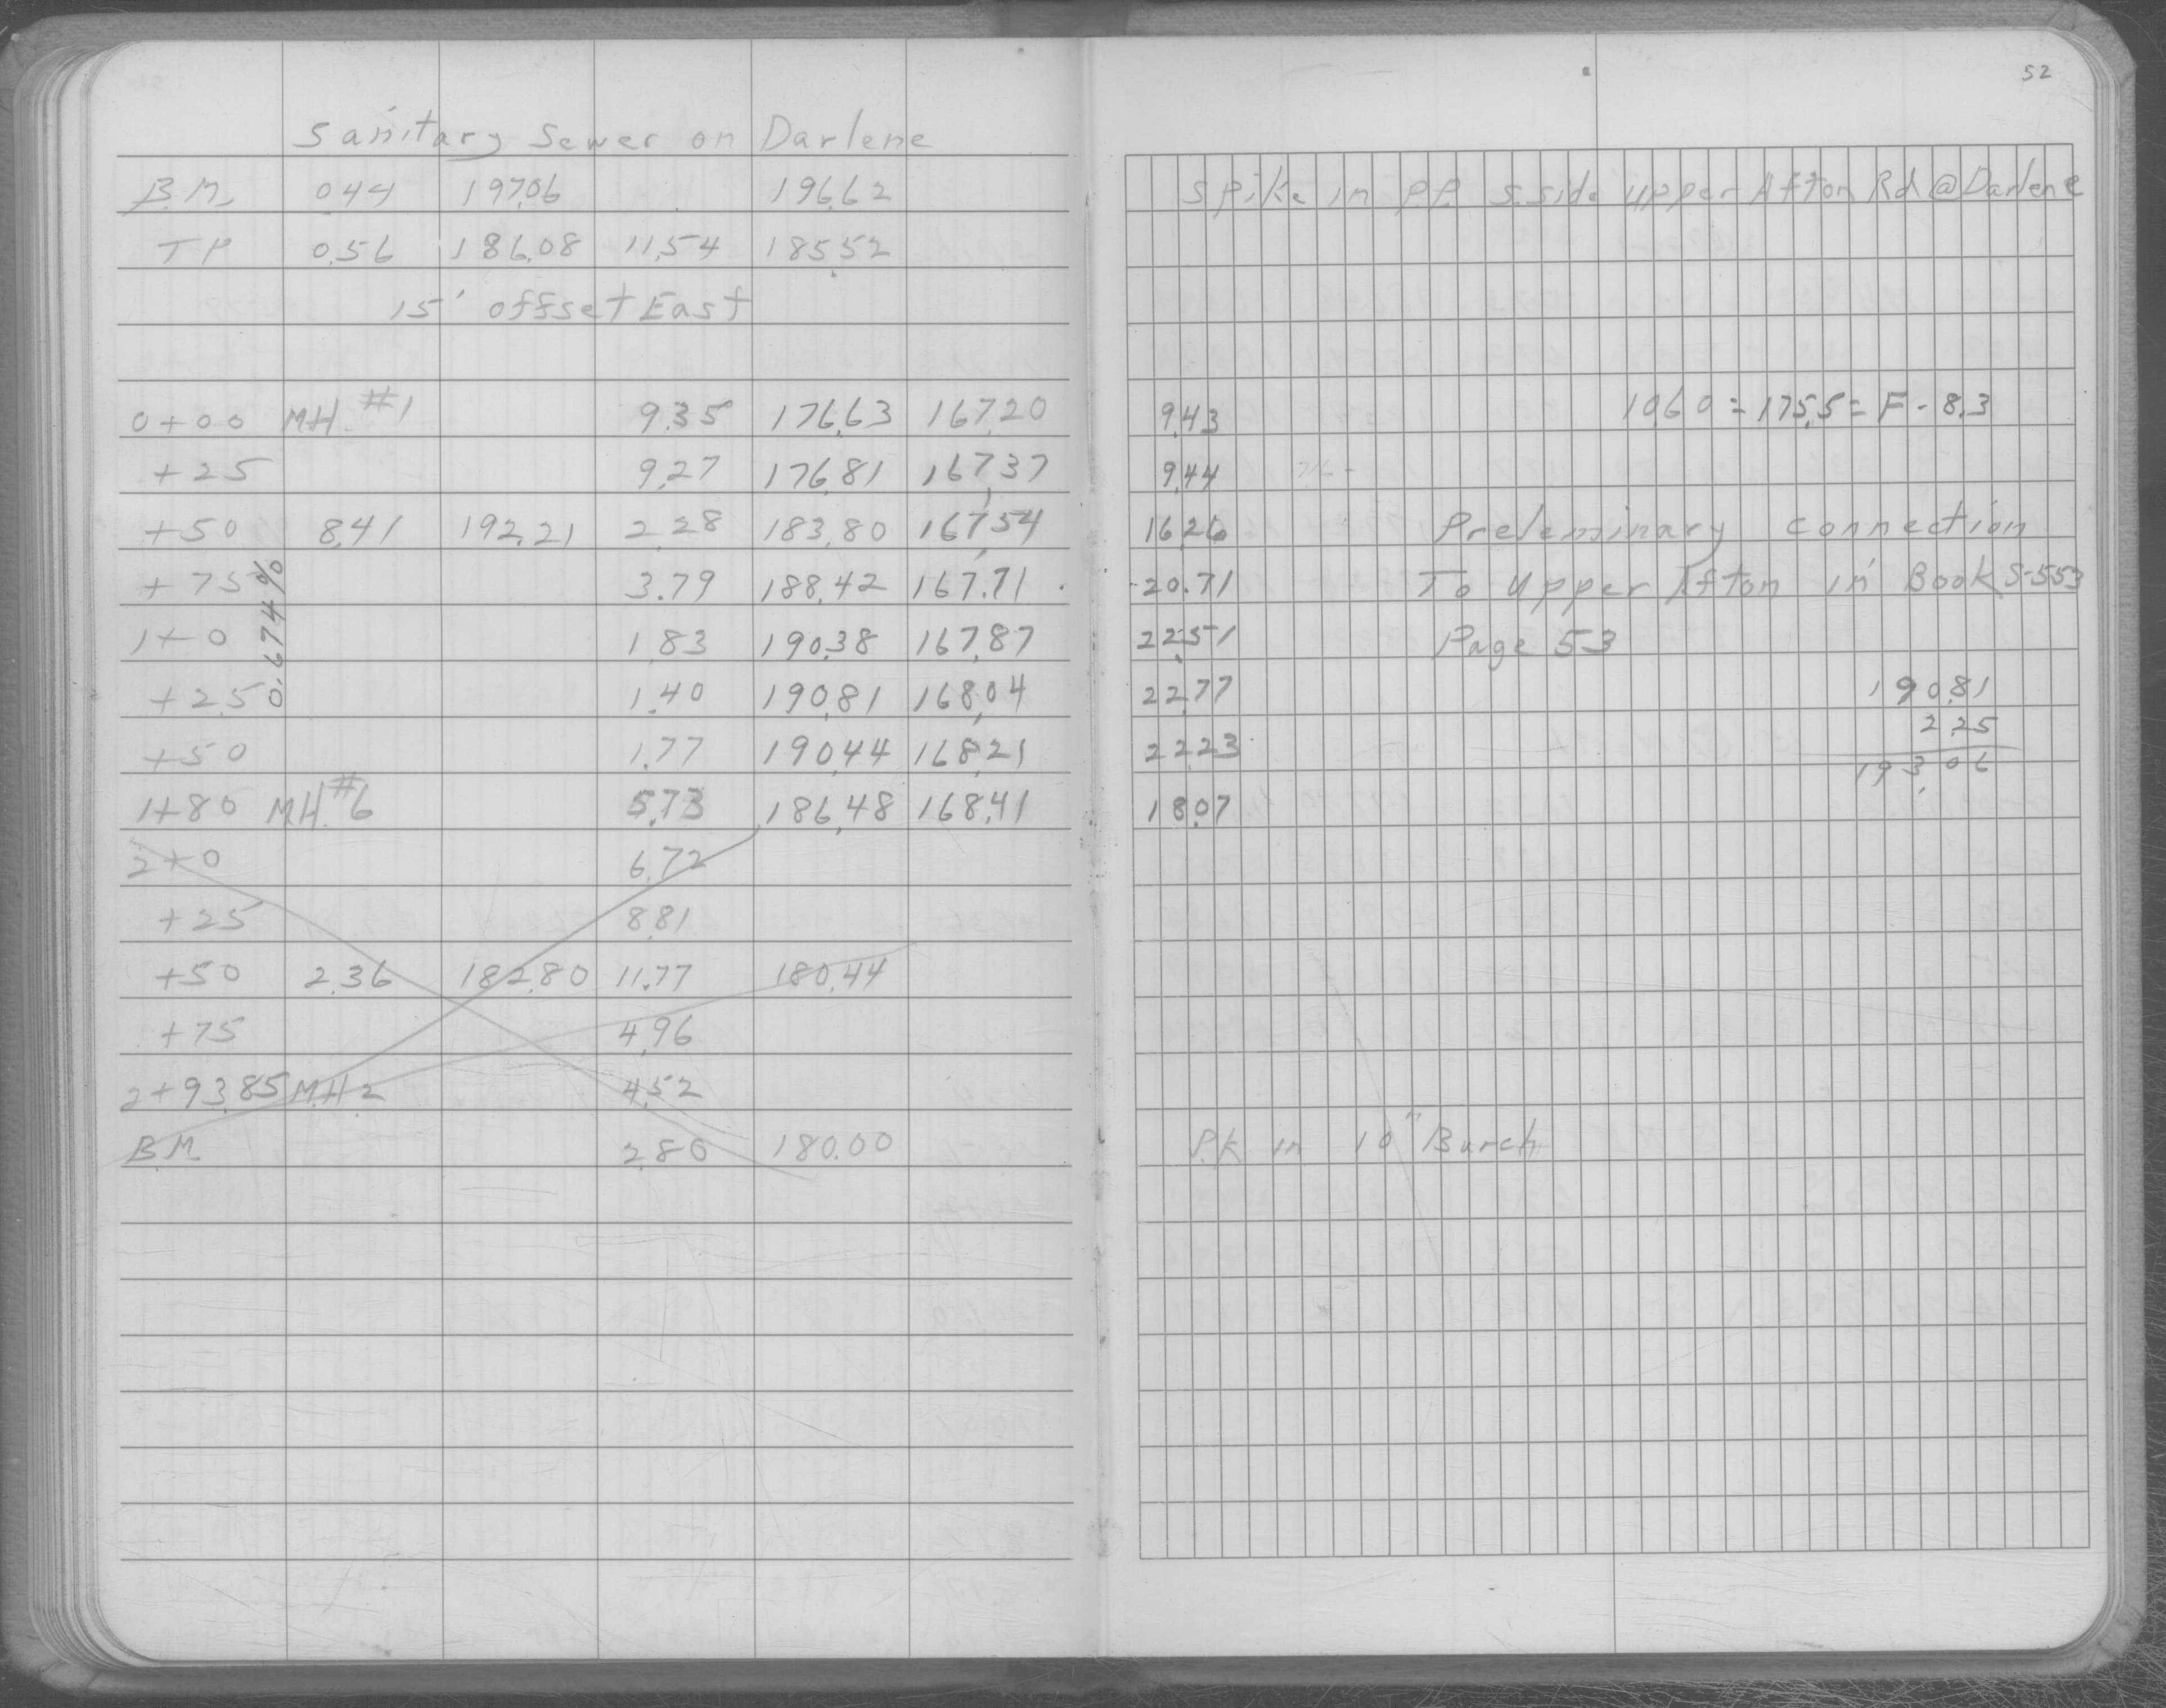 52
Sanitary Sewer on Darlene
B.M. 0.44 197.06 196.62 Spike in P.P. S. side Upper Afton Rd @ Darlene
TP 0.56 186.08 11.54 185.52
15' offset East
0+00 MH. #1 9.35 176.63 167.20 9.43 10.60 = 175.5 = F - 8.3
+25 9.27 176.81 167.37 9.44
+50 8.41 192.21 2.28 183.80 167.54 16.26 Preleminary connection
+75 3.79 188.42 167.71 20.71 To Upper Afton in Book S-553
1+0 1.83 190.38 167.87 22.51 Page 53
0.674%
+25 1.40 190.81 168.04 22.77 190.81
+50 1.77 190.44 168.21 22.23 2.25
193.06
1+80 MH. #6 5.73 186.48 168.41 18.07
2+0 6.72
+25 8.81
+50 2.36 182.80 11.77 180.44
+75 4.96
2+93.85 MH 2 4.52
B.M. 2.80 180.00 P.K in 10" Burch